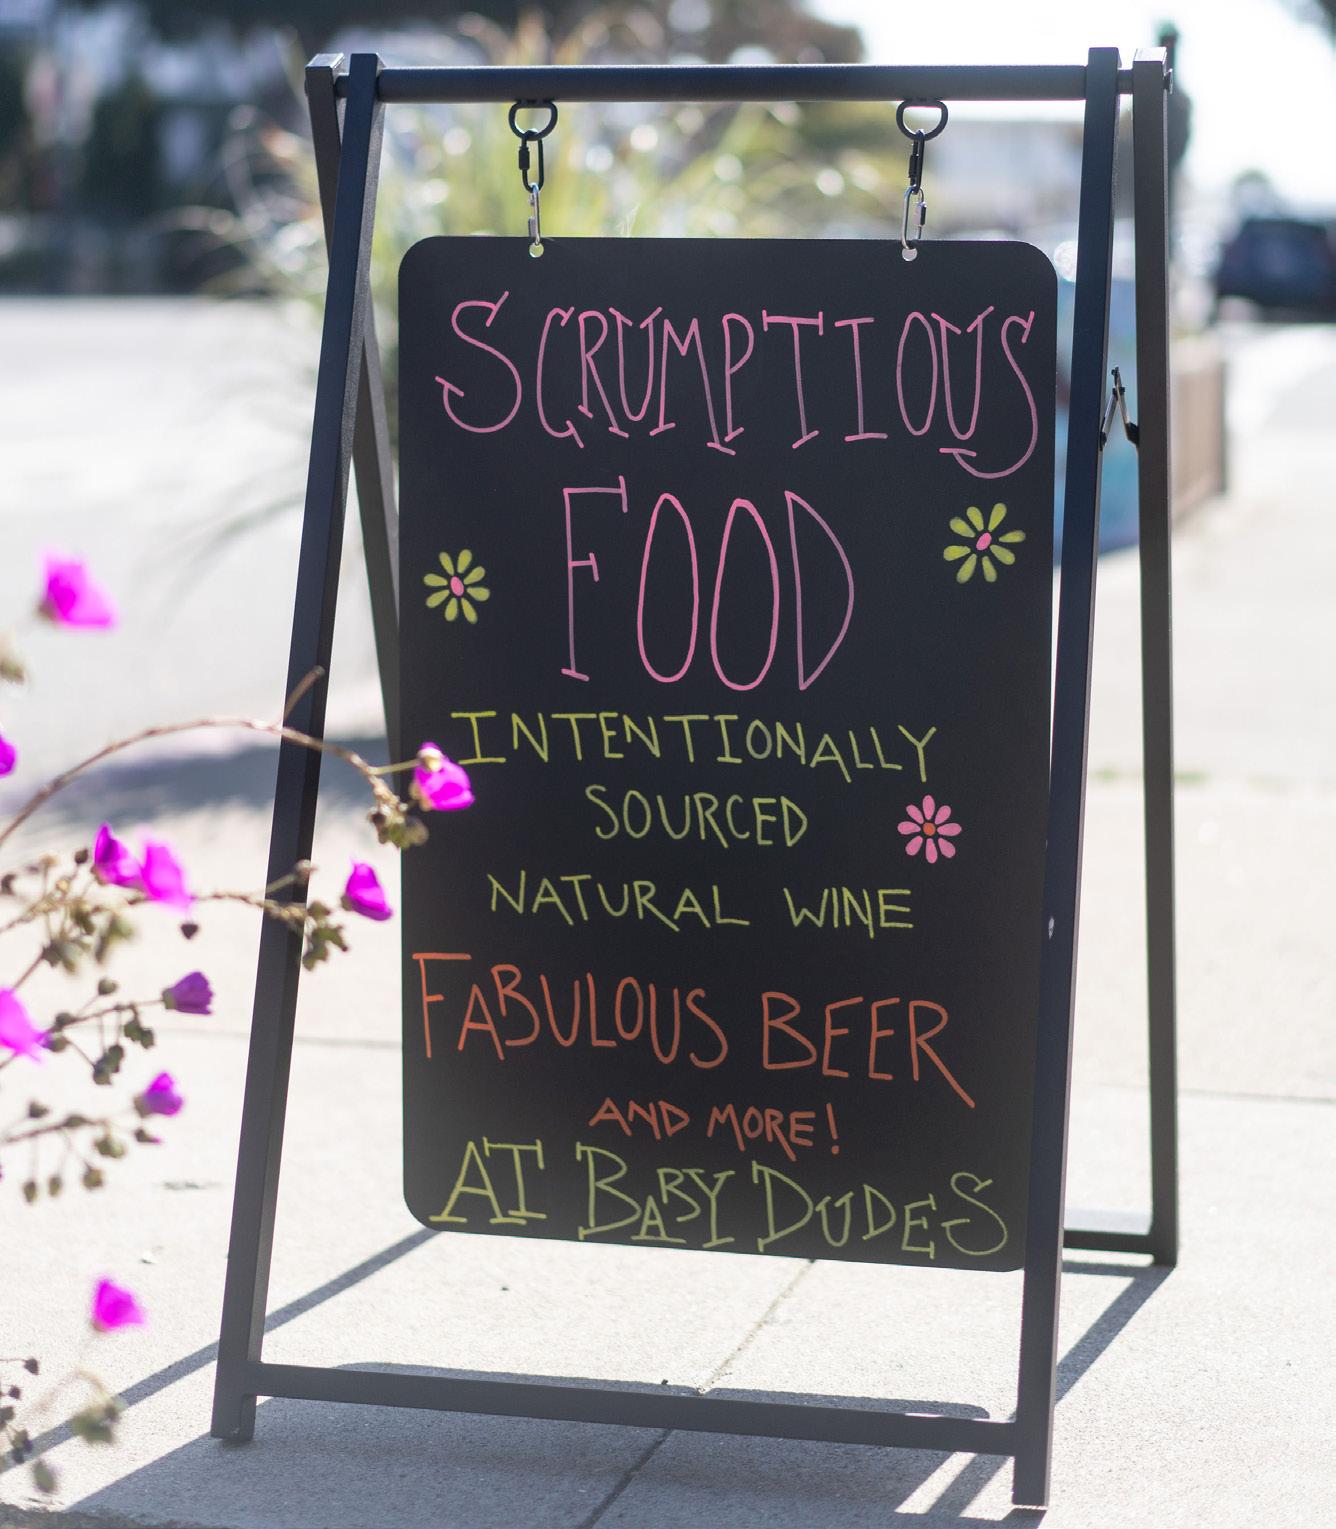 SCRUMPTIOUS
FOOD
INTENTIONALLY
SOURCED
NATURAL WINE
FABULOUS BEER
AND MORE!
AT BABY DUDES